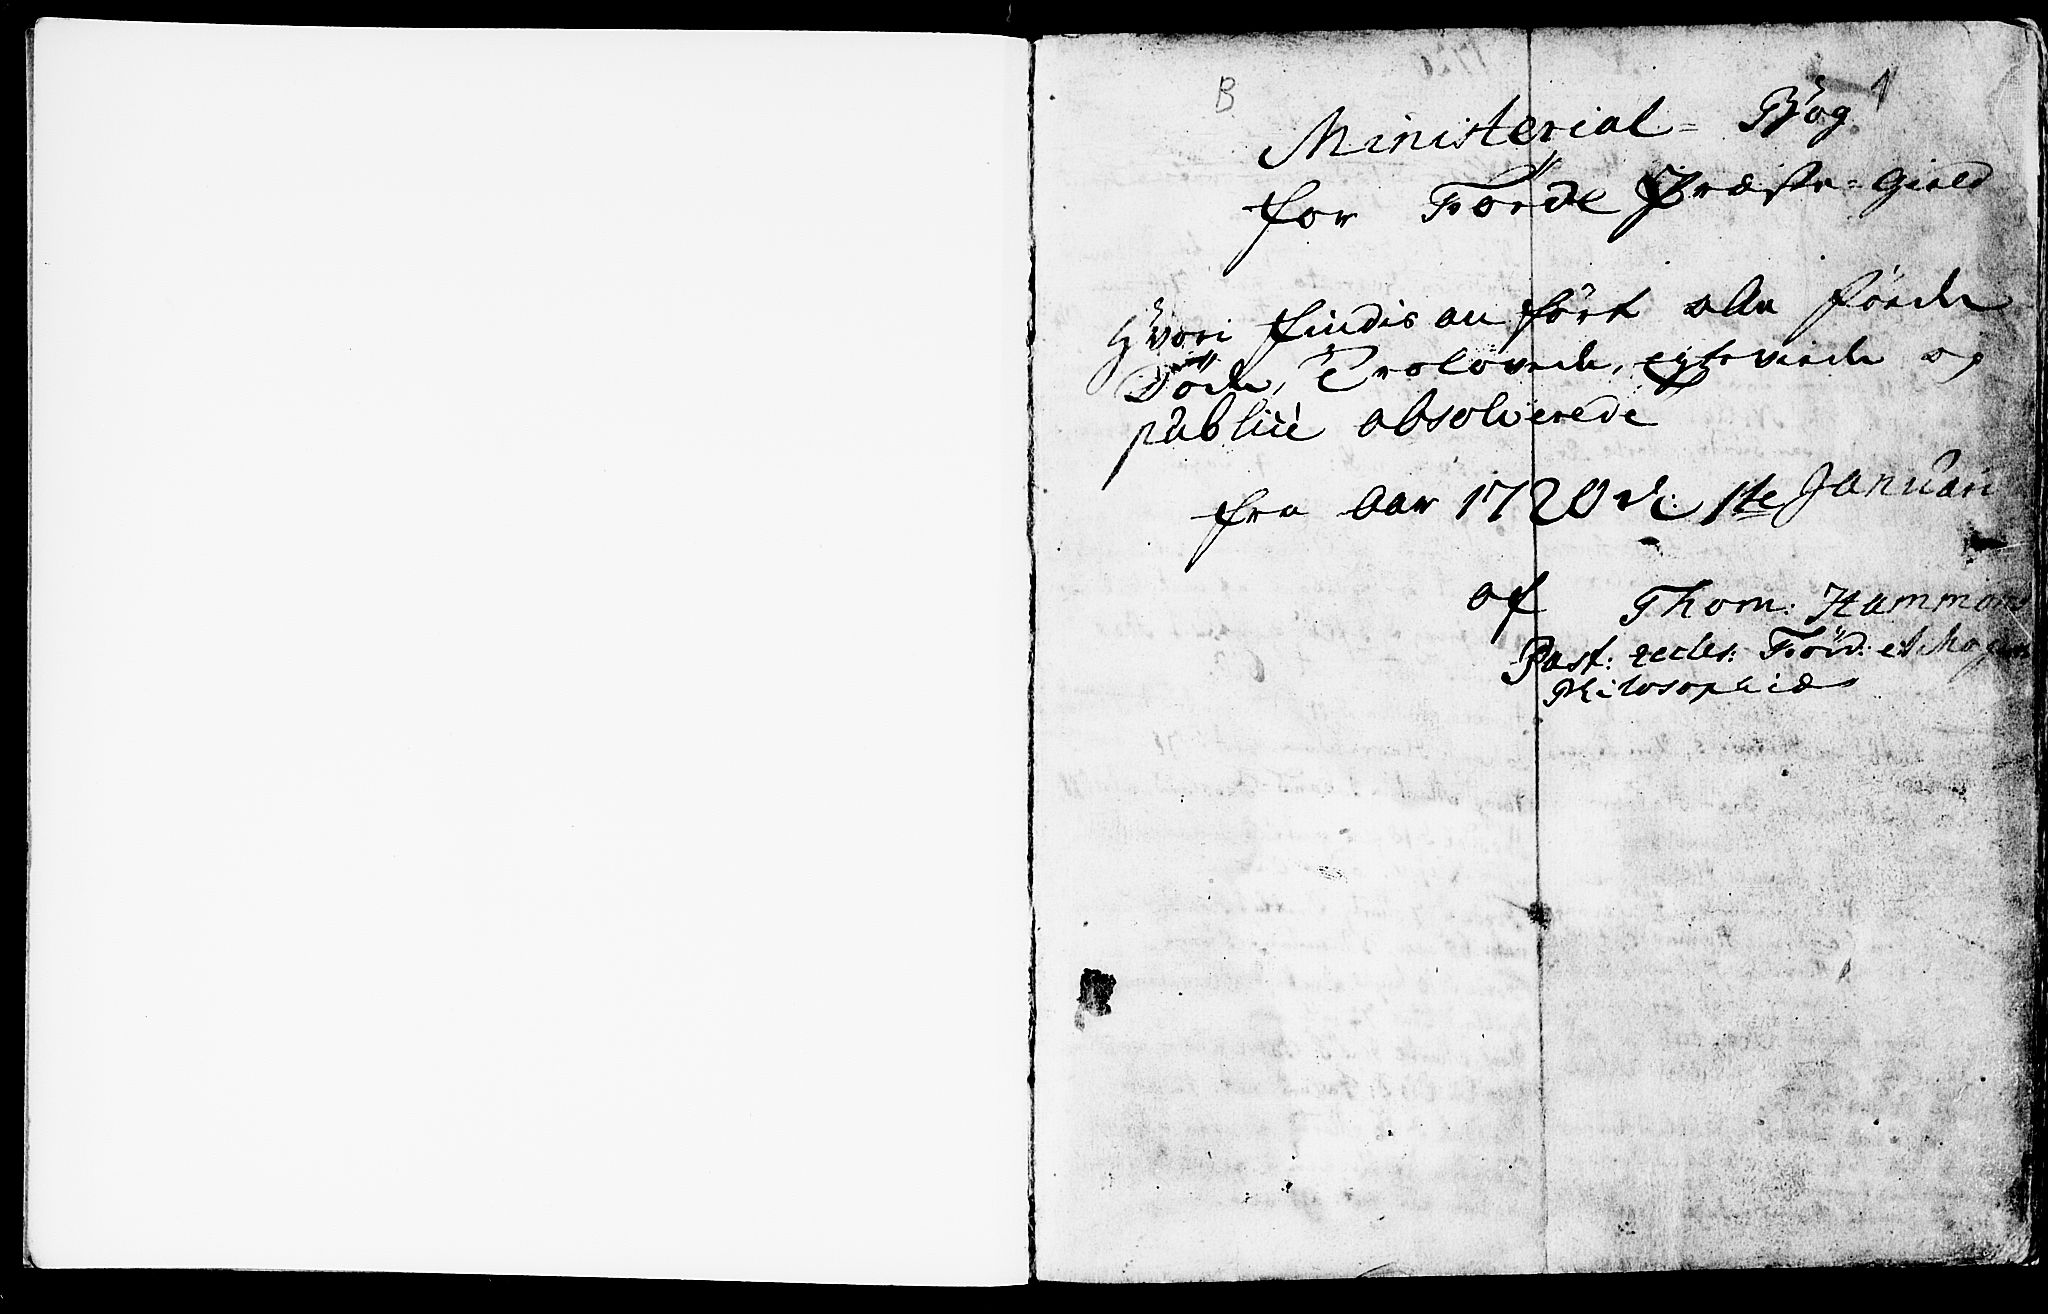 B
1
Ministerial= Bog
for Førde Præste=Gield
Hvori findis an ført alle fødde
Døde, Trolovede, egteviede og
publicè absolverede
fra Aar 1720 d: 1te Januari
af Thom: Hammond
Past: eccles: Førd: et Mag
Philosophiæ